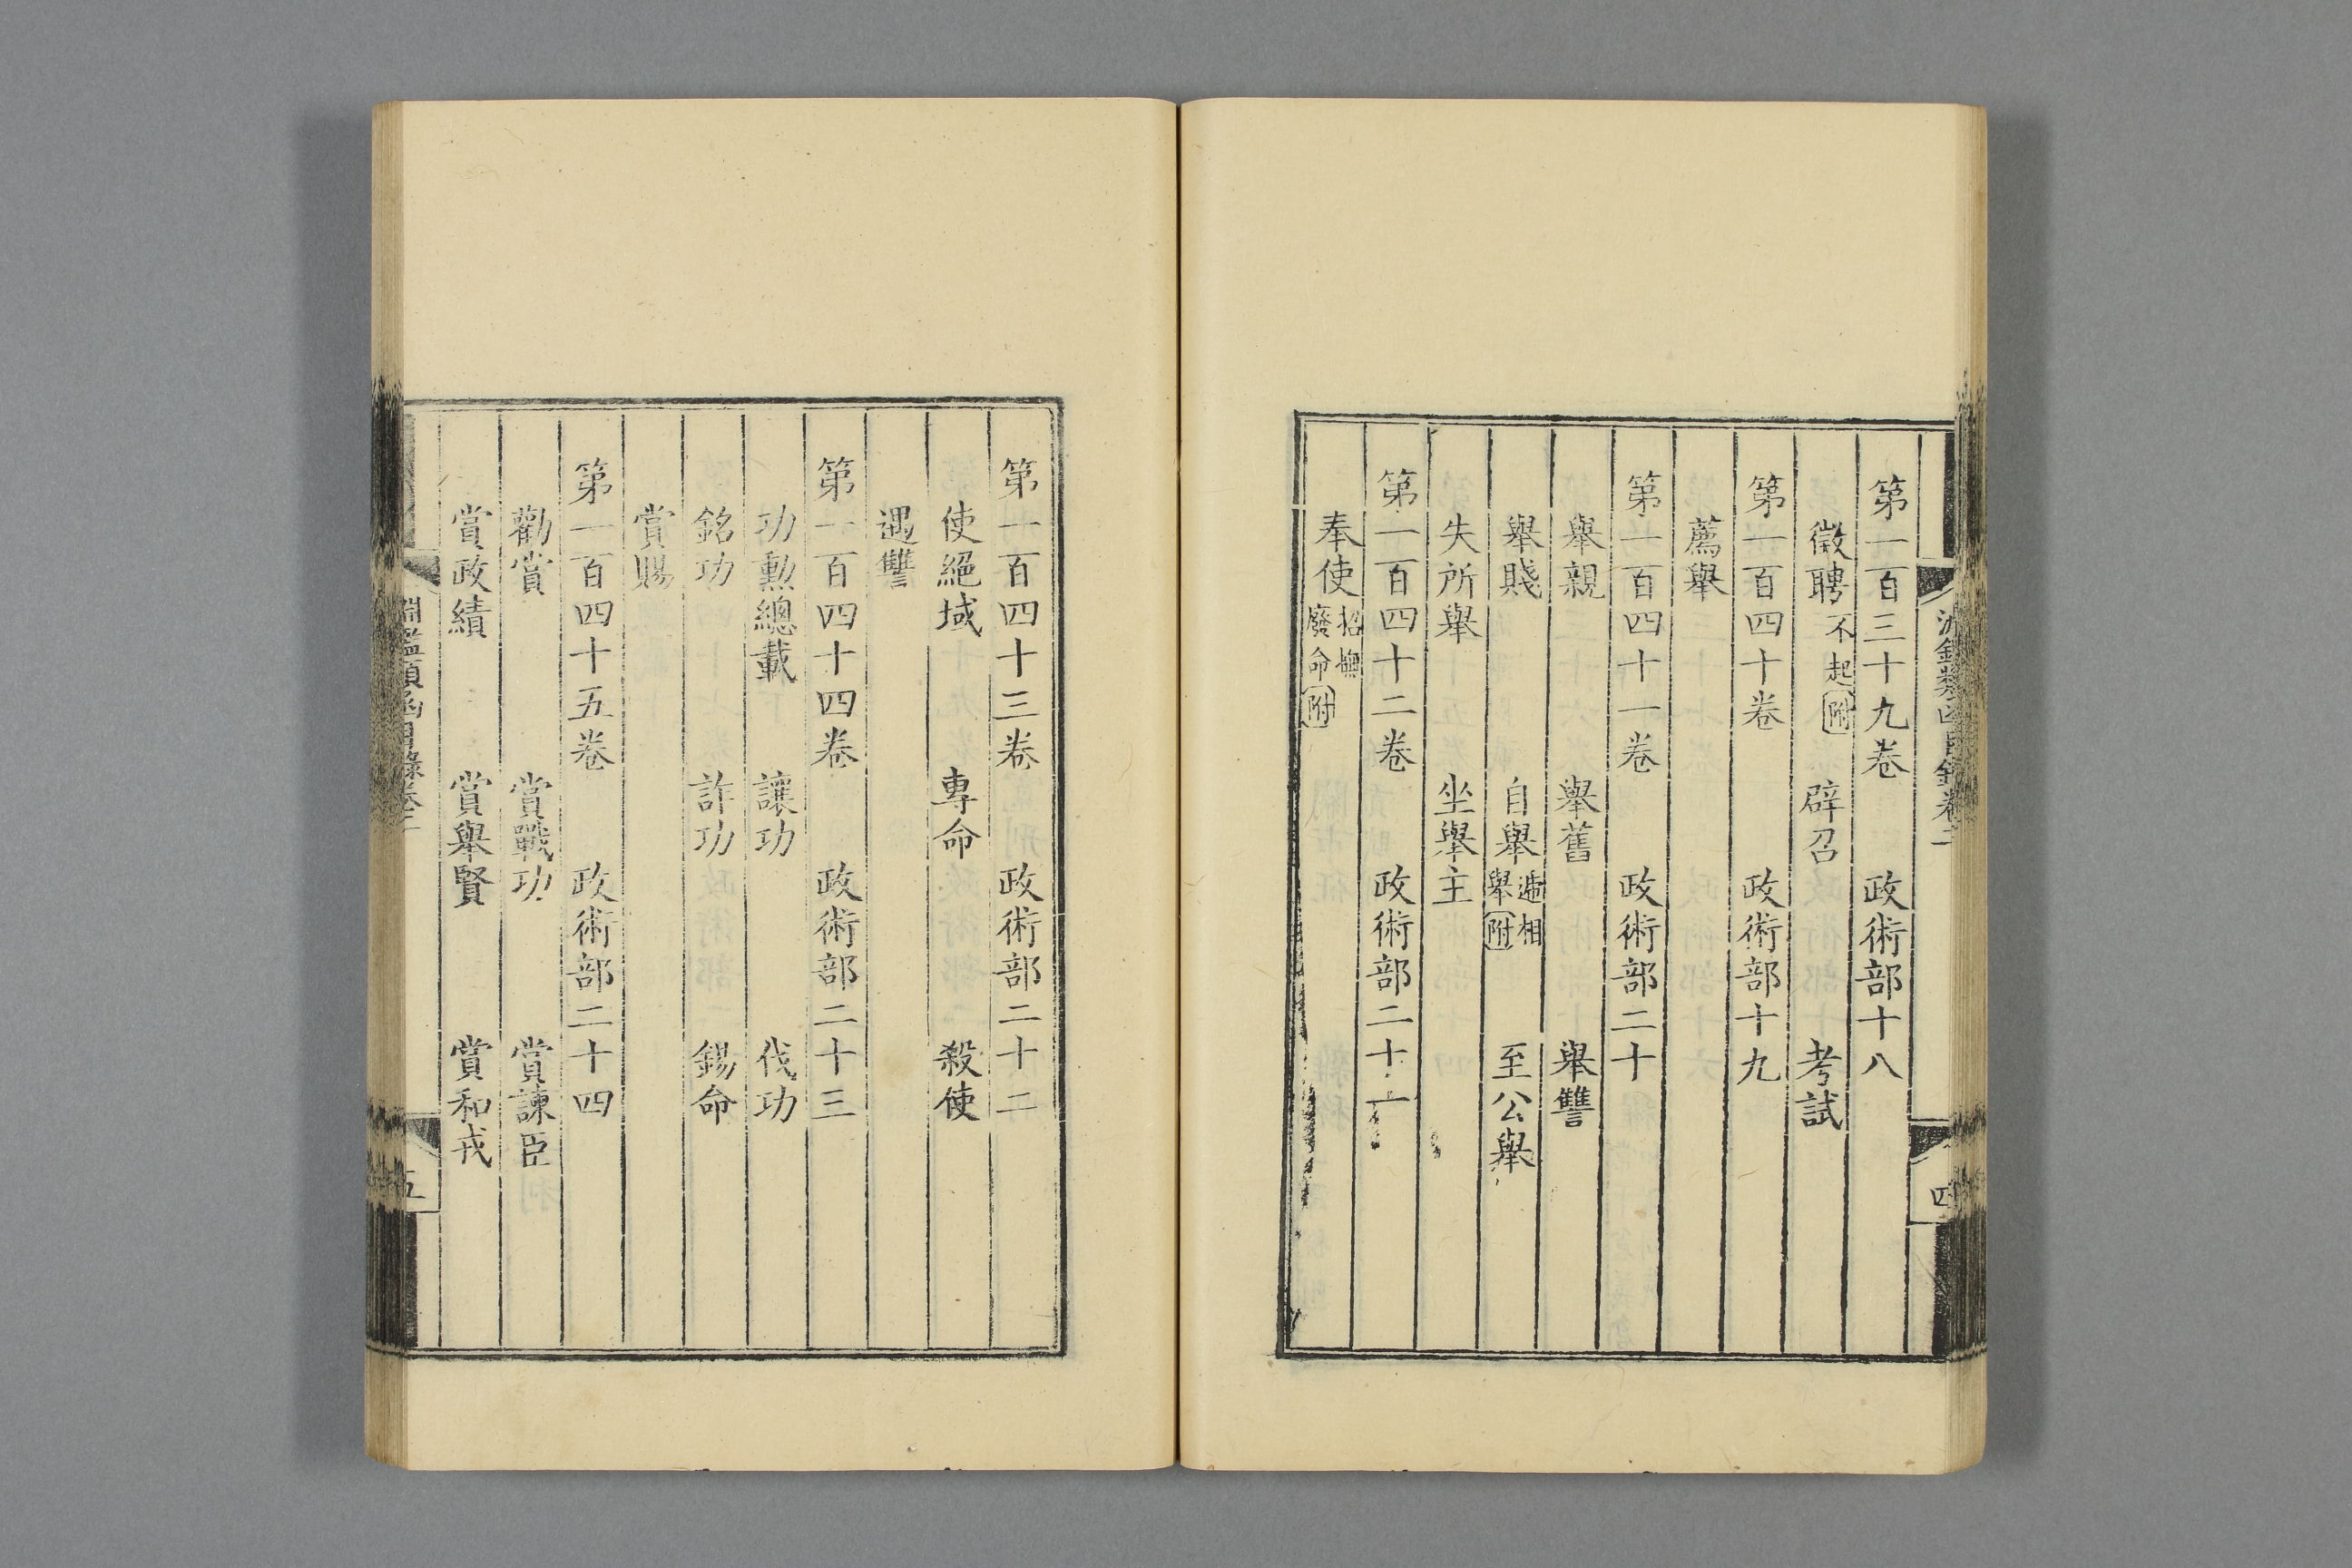 第一百三十九卷　政術部十八
徵聘不起附　辟召　考試
第一百四十卷　政術部十九
薦舉
第一百四十一卷　政術部二十
舉親　舉舊　舉讐
舉賤　自舉遞相舉附　至公舉
失所舉　坐舉主
第一百四十二卷　政術部二十一
奉使招撫廢命附
四
第一百四十三卷　政術部二十二
使絕域　專命　殺使
遇讐
第一百四十四卷　政術部二十三
功勲總載　讓功　伐功
銘功　詐功　錫命
賞賜
第一百四十五卷　政術部二十四
勸賞　賞戰功　賞諫臣
賞政績　賞舉賢　賞和戎
淵鑑類函目錄卷二
五